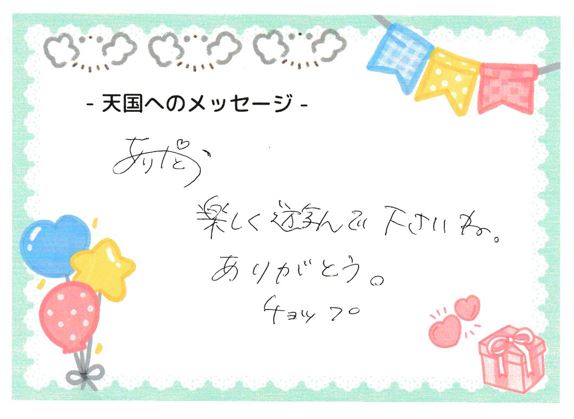 - 天国へのメッセージ -
ありがとう
楽しく遊んで下さいね。
ありがとう。
チョップ